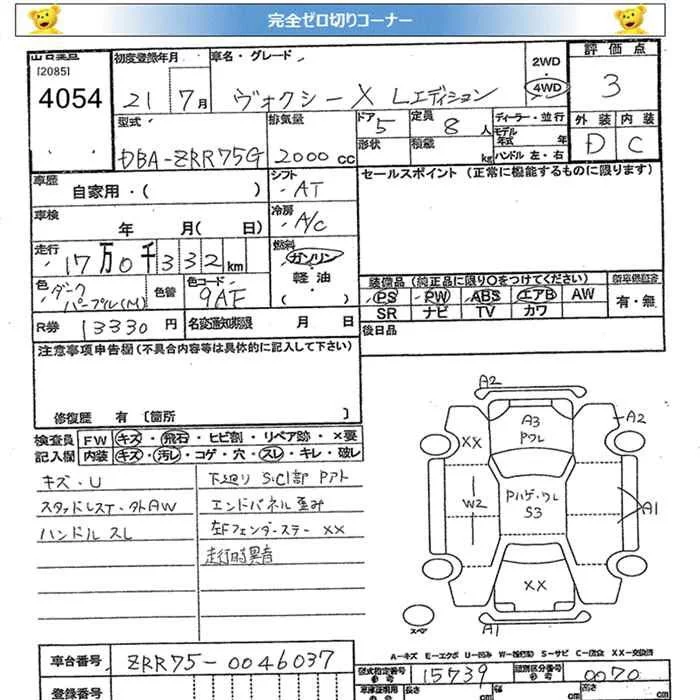 完全ゼロ切りコーナー
[2085]
4054
初度登録年月
21 7月
車名・グレード
ヴォクシー X Lエディション
2WD
4WD
評価点
3
外装 内装
D C
型式
DBA-ZRR75G
排気量
2000 CC
ドア 5
形状
定員 8 人
積載 kg
ディーラー・並行
モデル年式 年
ハンドル 左・右
車歴
自家用・( )
シフト
AT
セールスポイント (正常に機能するものに限ります)
車検
年 月( 日)
冷房
A/C
走行
17万0千332km
燃料
ガソリン
軽油
( )
色
ダークパープル(M)
色替
色コード
9AF
装備品(純正品に限り○をつけてください)
PS PW ABS エアB AW
SR ナビ TV カワ
有・無
R券 13330円
名変通知期限 月 日
後日品
注意事項申告欄(不具合内容等は具体的に記入して下さい)
修復歴 有 〔箇所 〕
検査員記入欄
FW キズ・飛石・ヒビ割・リペア跡・×要
内装 キズ・汚レ・コゲ・穴・スレ・キレ・破レ
キズ・U
スタッドレスT・タトAW
ハンドル スレ
下廻り S・C1部 Pアト
エンドパネル歪み
左Fフェンダーステー XX
走行時異音
A2
A3
Pワレ
XX
A2
W2
Pハゲ・ワレ
S3
A1
XX
A1
スペア
A−キズ E−エクボ U−凹み W−補修跡 S−サビ C−腐食 XX−交換済
車台番号 ZRR75-0046037
型式指定番号 15739
類別区分番号 0070
登録番号
長さ cm
幅 cm
高さ cm